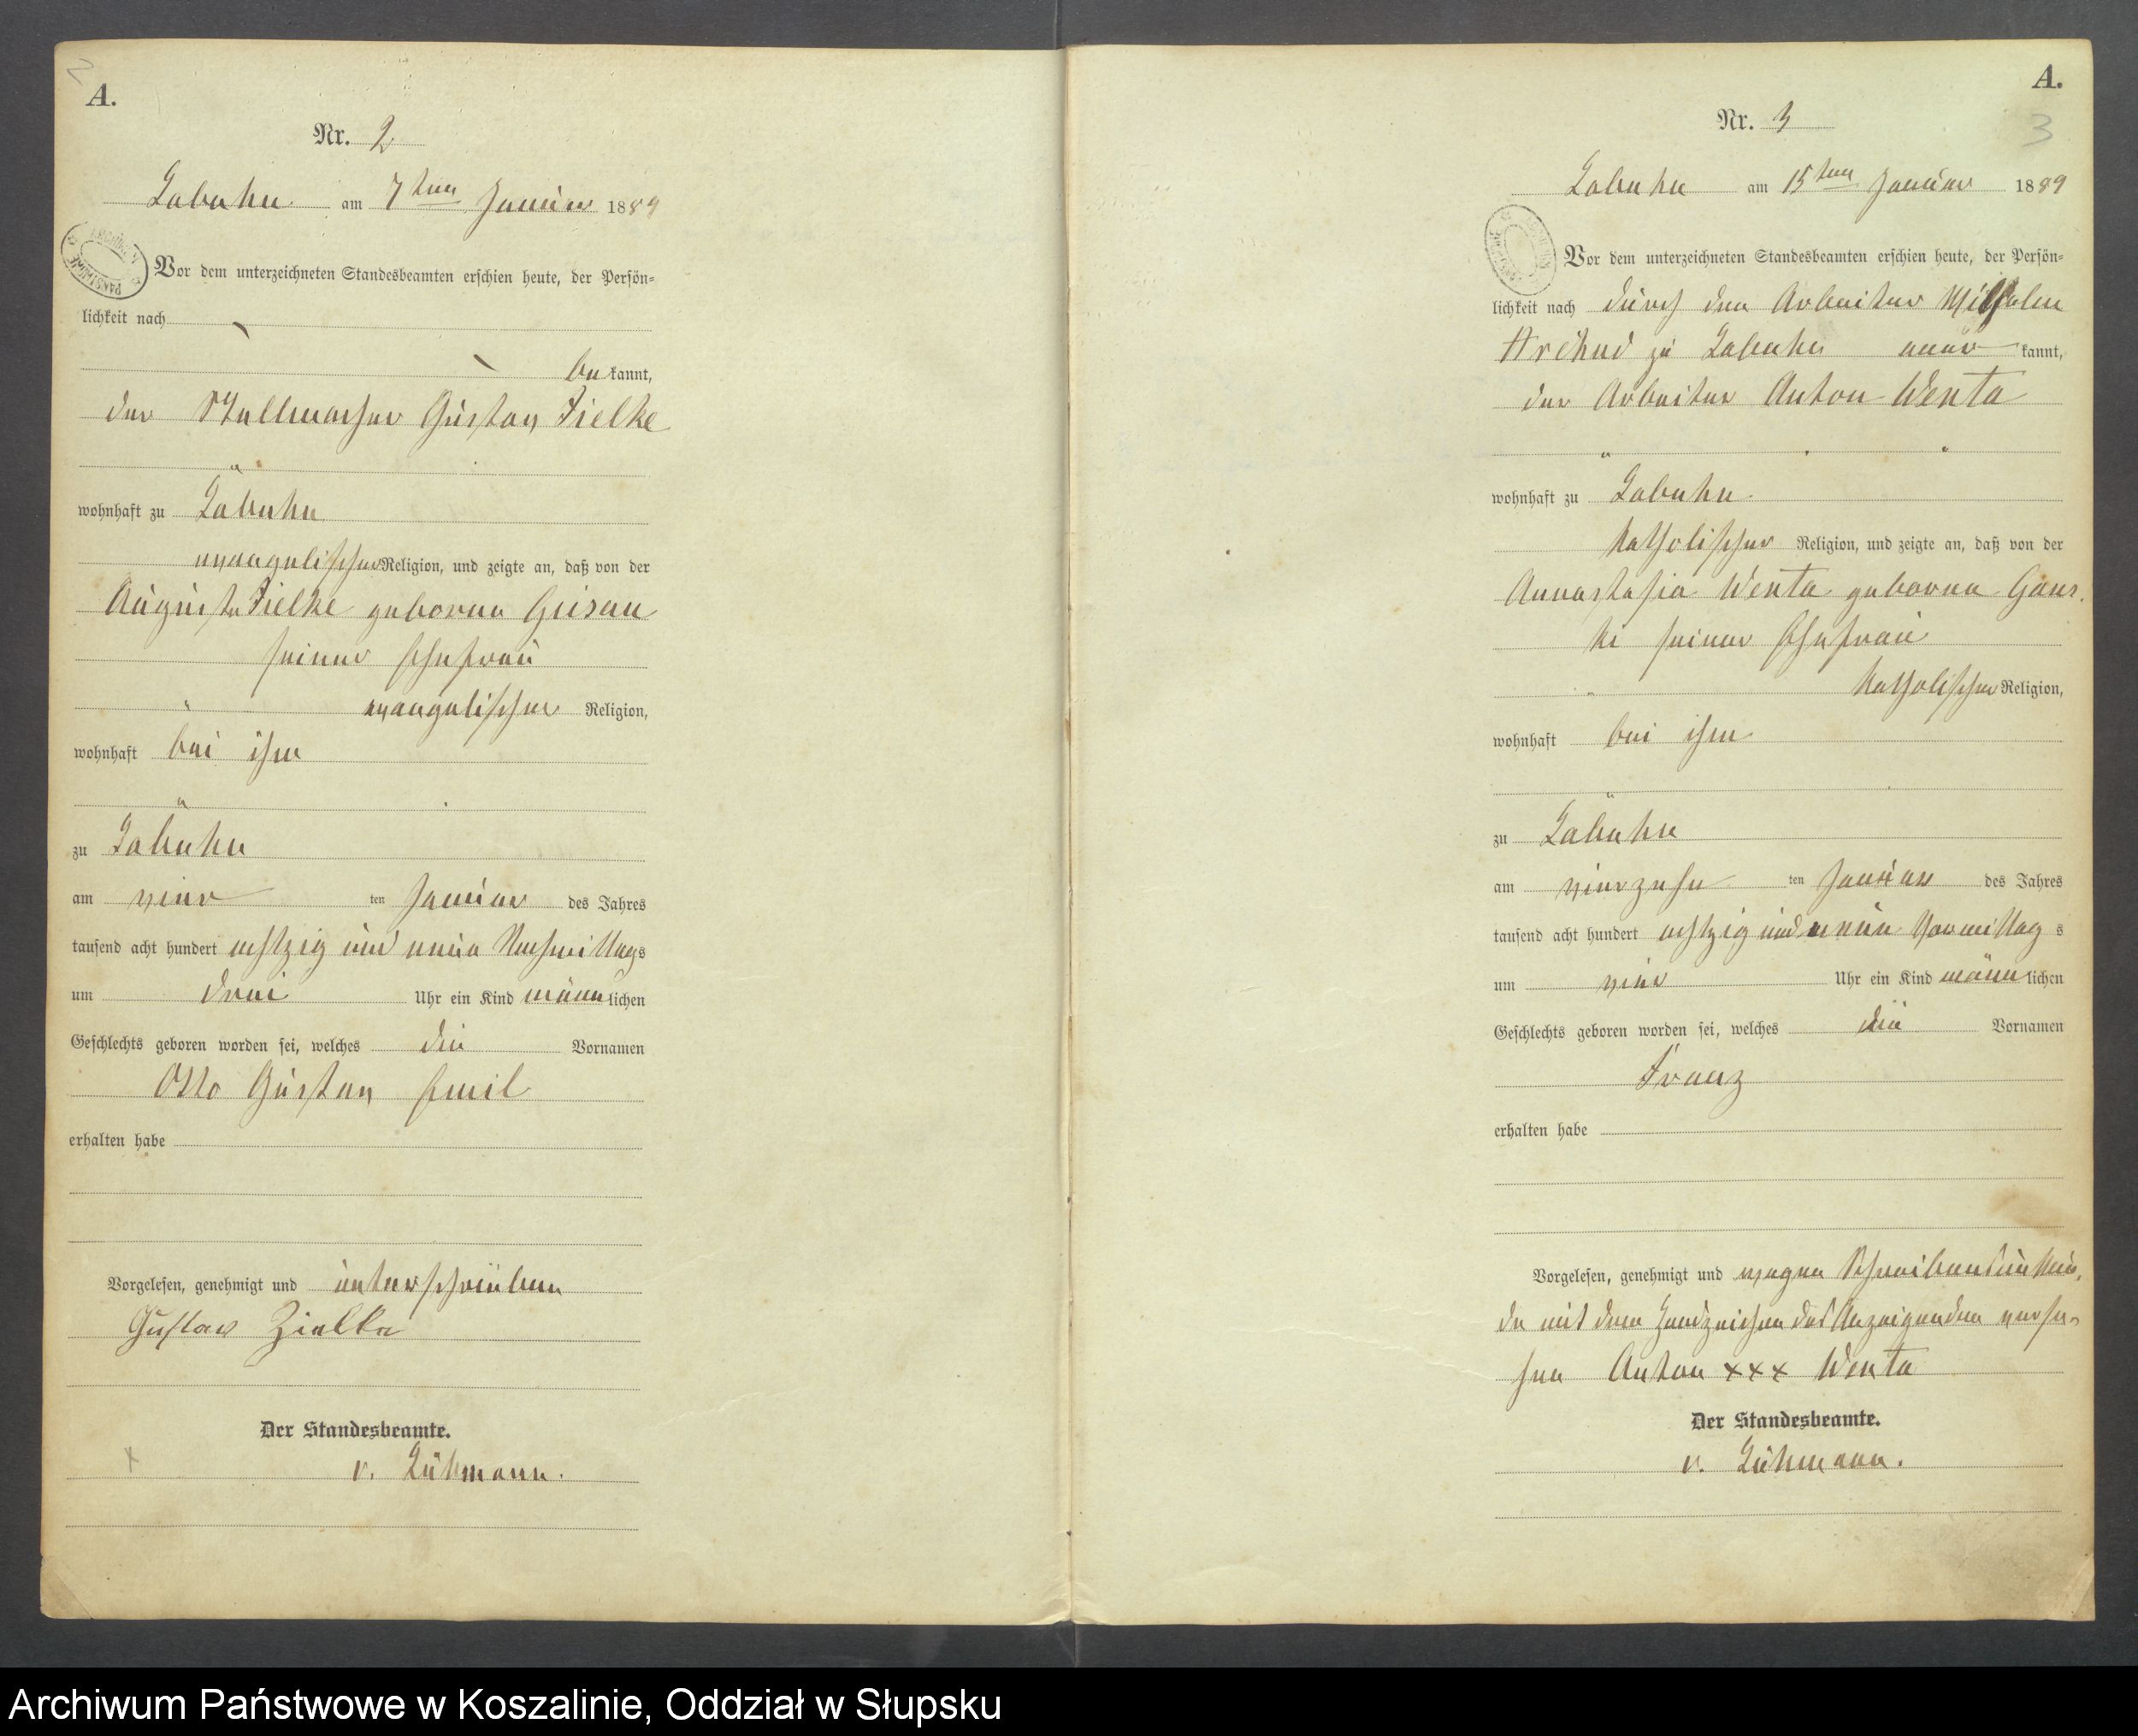 2
A.
Nr. 2
Labuhn am 7ten Januar 1889
Vor dem unterzeichneten Standesbeamten erschien heute, der Persön-
lichkeit nach
bekannt,
der Stellmacher Gustav Zielke
wohnhaft zu Labuhn
evangelischer Religion, und zeigte an, daß von der
Auguste Zielke geborene
seiner Ehefrau
evangelischer Religion,
wohnhaft bei ihm
zu Labuhn
am vier ten Januar des Jahres
tausend acht hundert achtzig und neun Nachmittags
um drei Uhr ein Kind männlichen
Geschlechts geboren worden sei, welches die Vornamen
Otto Gustav Emil
erhalten habe
Vorgelesen, genehmigt und unterschrieben
Gustav Zielke
Der Standesbeamte.
v. Lühmann.
A.
3
Nr. 3
Labuhn am 15ten Januar 1889
Vor dem unterzeichneten Standesbeamten erschien heute, der Persön-
lichkeit nach durch den Arbeiter Wilhelm
zu Labuhn anerkannt,
der Arbeiter Anton Wenta
wohnhaft zu Labuhn
katholischer Religion, und zeigte an, daß von der
Annastasia Wenta geborene Gans-
ki seiner Ehefrau
katholischer Religion,
wohnhaft bei ihm
zu Labuhn
am vierzehn ten Januar des Jahres
tausend acht hundert achtzig und neun Vormittags
um vier Uhr ein Kind männlichen
Geschlechts geboren worden sei, welches die Vornamen
Franz
erhalten habe
Vorgelesen, genehmigt und wegen Schreibensunkun-
de mit dem Handzeichen des Anzeigenden verse-
hen Anton xxx Wenta
Der Standesbeamte.
v. Lühmann.
Archiwum Państwowe w Koszalinie, Oddział w Słupsku